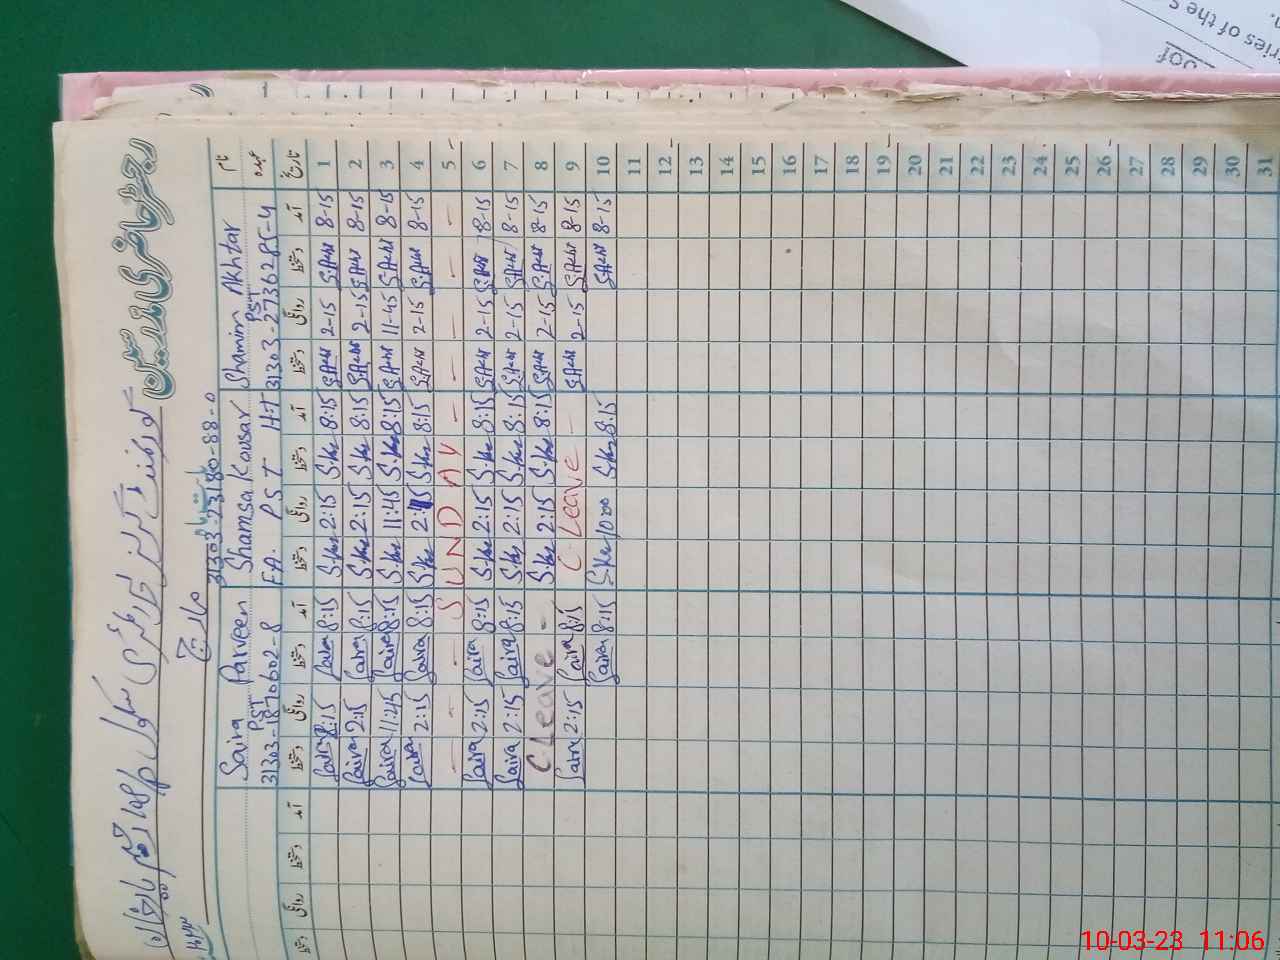 رجسٹر حاضری مدرسین
گورنمنٹ گرلز پرائمری سکول
مارچ
31303-23180-88-0
نام Shamim Akhtar Shamsa Kousar Saira Parveen
عہدہ PST F.A. PST H.T PST
31303-2736285-4 31303-1870602-8
تاریخ آمد دستخط روانگی دستخط آمد دستخط روانگی دستخط آمد دستخط روانگی دستخط آمد دستخط روانگی دستخط
1 8-15 S.Akht 2-15 S.Akht 8:15 S.Ksr 2:15 S.Ksr 8:15 Saira 2:15 Saira
2 8-15 S.Akht 2-15 S.Akht 8:15 S.Ksr 2:15 S.Ksr 8:15 Saira 2:15 Saira
3 8-15 S.Akht 11-45 S.Akht 8:15 S.Ksr 11:45 S.Ksr 8:15 Saira 11:45 Saira
4 8-15 S.Akht 2-15 S.Akht 8:15 S.Ksr 2:15 S.Ksr 8:15 Saira 2:15 Saira
5 SUNDAY
6 8-15 S.Akht 2-15 S.Akht 8:15 S.Ksr 2:15 S.Ksr 8:15 Saira 2:15 Saira
7 8-15 S.Akht 2-15 S.Akht 8:15 S.Ksr 2:15 S.Ksr 8:15 Saira 2:15 Saira
8 8-15 S.Akht 2-15 S.Akht 8:15 S.Ksr 2:15 S.Ksr C Leave
9 8-15 S.Akht 2-15 S.Akht C Leave 8:15 Saira 2:15 Saira
10 8-15 S.Akht 8:15 S.Ksr 10:00 S.Ksr 8:15 Saira
11
12
13
14
15
16
17
18
19
20
21
22
23
24
25
26
27
28
29
30
31
ries of the S
10-03-23 11:06